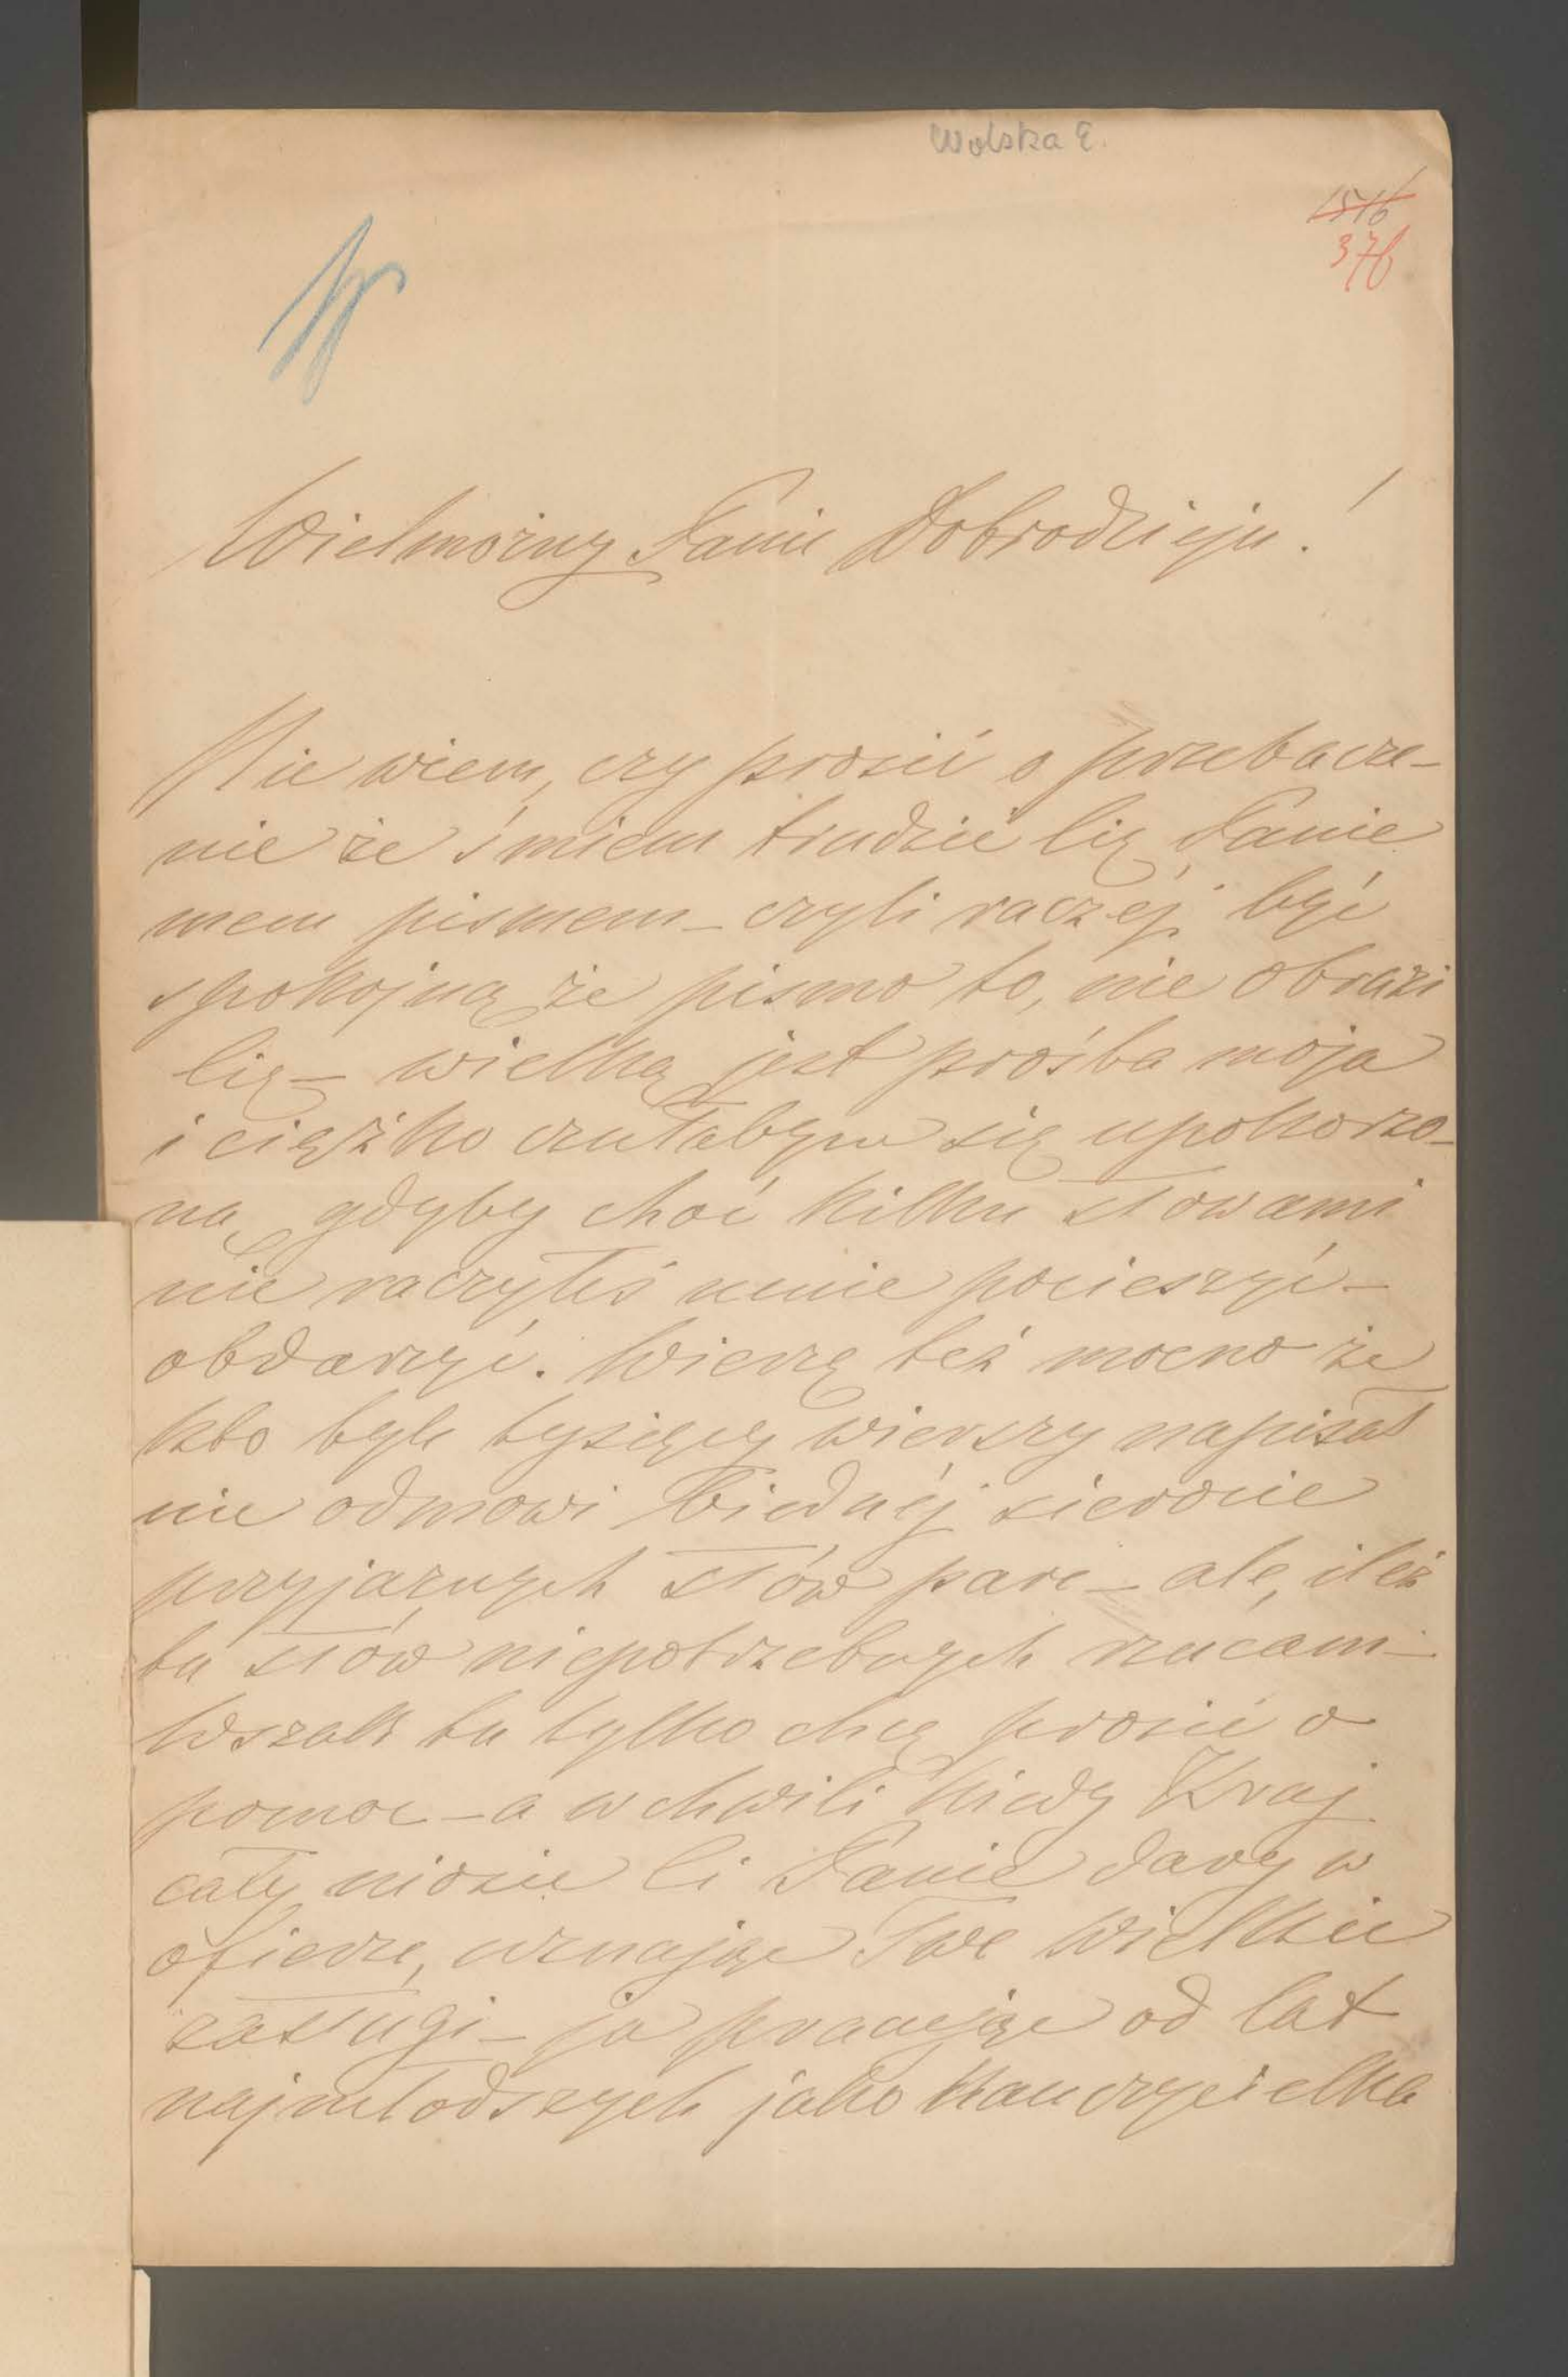 Wolska E.
1516
376
W
Wielmożny Panie Dobrodzieju!
Nie wiem, czy prosić o przebacze-
nie że śmiem trudzić Cię Panie
mem pismem – czyli raczéj być
spokojną że pismo to, nie obrazi
Cię – wielką jest prośba moja
i ciężko czułabym się upokorzo-
ną gdyby choć kilku słowami
nie raczyłeś mnie pocieszyć –
obdarzyć. Wierzę też mocno że
kto tyle tysięcy wierszy napisał
nie odmowi biednéj sierocie
przyjaznych słów parę – ale, ileż
tu słów niepotrzebnych rzucam –
Wszak tu tylko chcę prosić o
pomoc – a w chwili kiedy Kraj
cały niesie Ci Panie dary w
ofierze, uznając Twe Wielkie
zasługi – ja pracując od lat
najmłodszych jako Nauczycielka